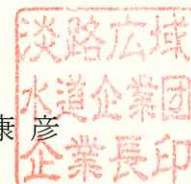 康彦
淡路広域
水道企業団
企業長印